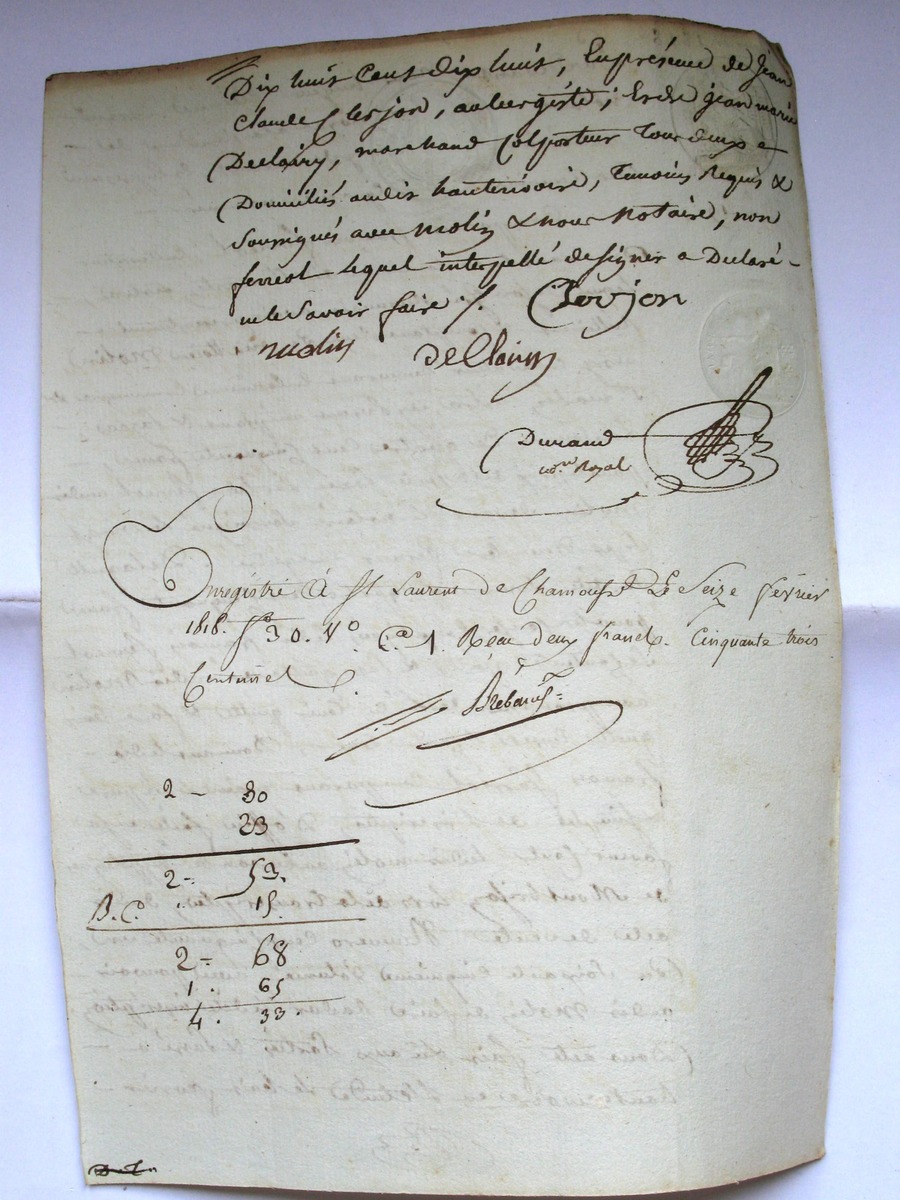 Dix huit Cent dix huit, En présence de Jean
Claude Clerjon, aubergiste; Et de jean marie
Declairy, marchand Colporteur Tour deux
Domiciliés audit hauterivoire, Temoins Requis &
Soussignés avec molin & nous Notaire, non
ferreol lequel interpellé de signer a Declaré
ne le Savoir faire ./.
Clerjon
molin
deClairy
Durand
not.re Royal
Enregistré à St Laurent De Chamousset Le Seize février
1818. fo 30. Vo. C.e 1. Reçu deux francs Cinquante trois
Centimes
2 - 30
23
2 - 53.
B.C. " 15.
2 = 68
1. 65
4. 33